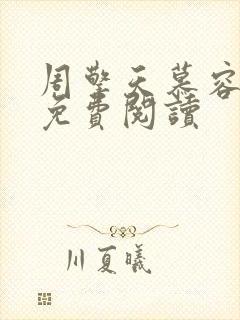 周擎天慕容
免費閱讀
川夏曦